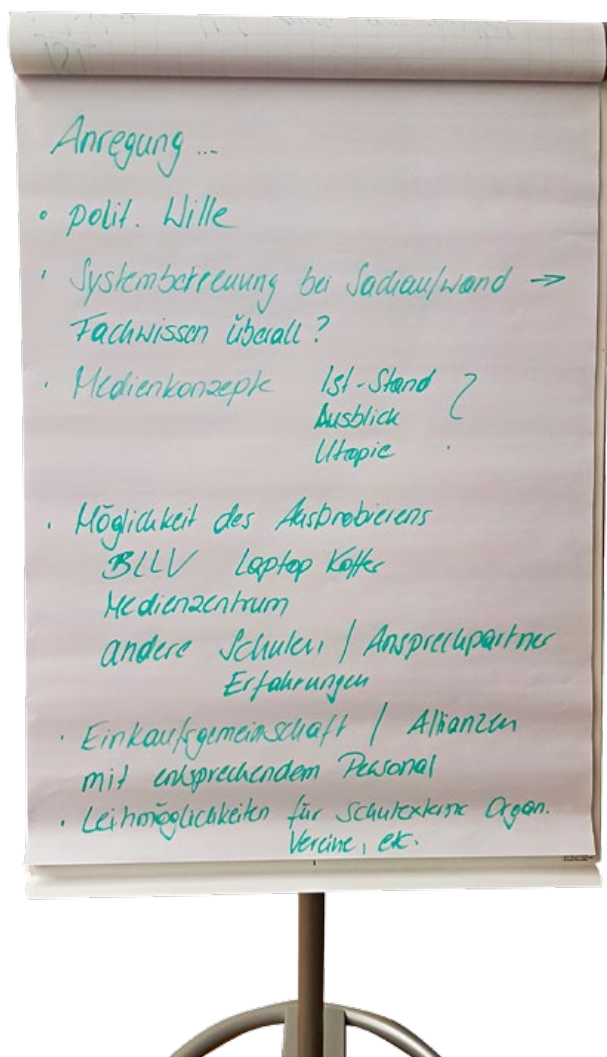 Anregung ...
• polit. Wille
• Systembetreuung bei Sachaufwand →
Fachwissen überall?
• Medienkonzepte Ist-Stand
Ausblick
Utopie
• Möglichkeit des Ausprobierens
BLLV Laptop Koffer
Medienzentrum
andere Schulen, / Ansprechpartner
Erfahrungen
• Einkaufsgemeinschaft / Allianzen
mit entsprechendem Personal
• Leihmöglichkeiten für schulexterne Organ.
Vereine, etc.